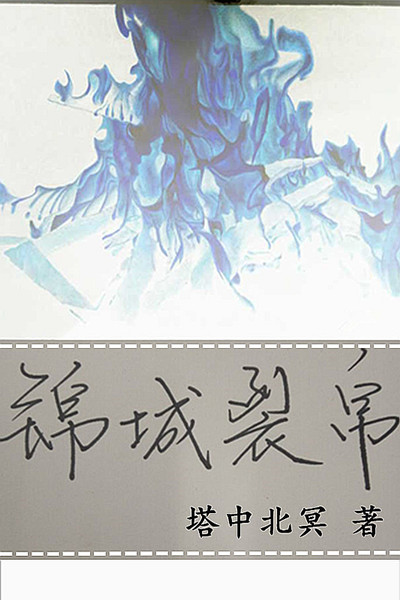 锦城裂帛
塔中北冥 著